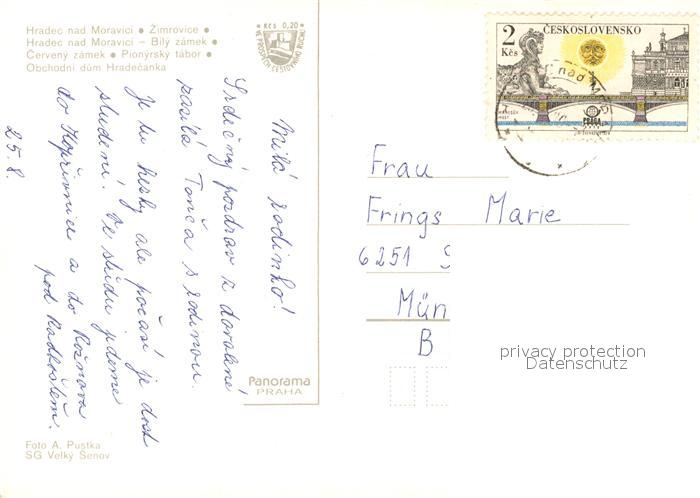 Hradec nad Moravicí ● Žimrovice ●
Hradec nad Moravicí – Bílý zámek ●
Červený zámek ● Pionýrský tábor ●
Obchodní dům Hradečanka
Kčs 0,20
VE PROSPĚCH CESTOVNÍHO RUCHU
Milá rodinko!
Srdečný pozdrav z dovolené
posílá Tonča s rodinou.
Je tu hezky ale počasí je dost
studení. Ve středu jedeme
do Kopřivnice a do Rožnova
pod Radhoštěm.
25. 8.
Panorama
PRAHA
Foto A. Pustka
SG Velký Šenov
2
Kčs
ČESKOSLOVENSKO
PRAGA
nad
Frau
Frings Marie
6251 S
Mün
B
privacy protection
Datenschutz